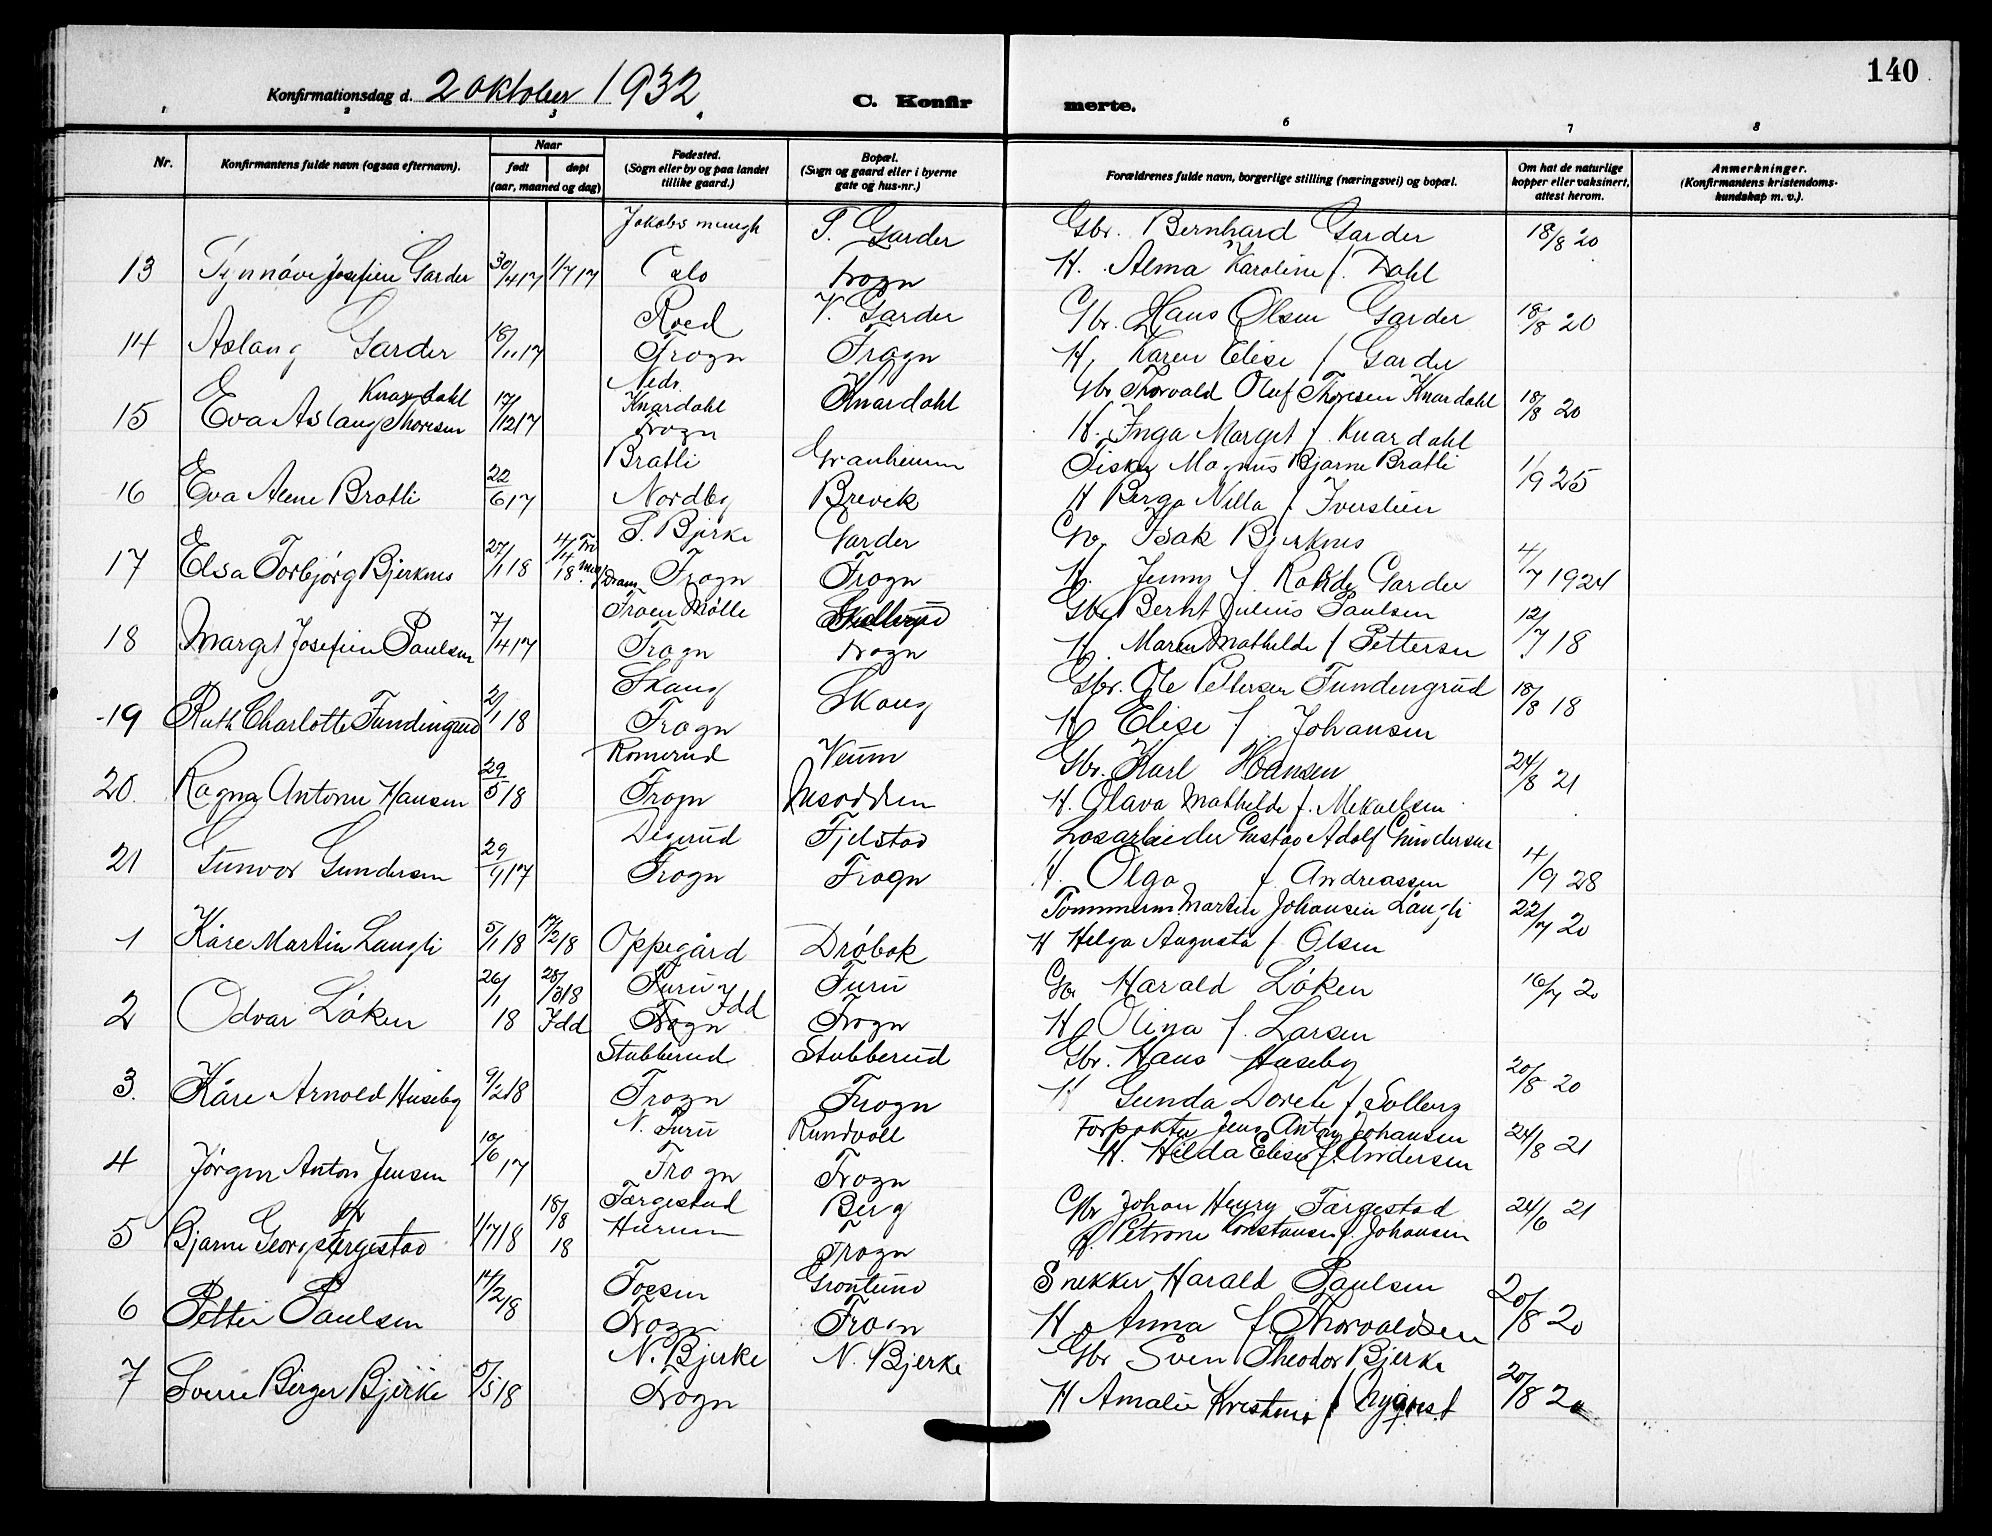 140
Konfirmationsdag d. 2 oktober 1932.
C. Konfirmerte.
1 2 3 4 6 7 8
Nr.
Konfirmantens fulde navn (ogsaa efternavn).
Naar
født døpt
(aar, maaned og dag)
Fødested.
(Sogn eller by og paa landet
tillike gaard.)
Bopæl.
(Sogn og gaard eller i byerne
gate og hus-nr.)
Forældrenes fulde navn, borgerlige stilling (næringsvei) og bopæl.
Om hat de naturlige
kopper eller vaksinert,
attest herom.
Anmerkninger.
(Konfirmantens kristendoms-
kundskap m. v.).
Jakobs mengh S. Garder Gbr. Bernhard Garder 18/8 20
13 Synnøve Josefien Garder 30/4 17 1/7 17 Oslo Frogn H. Alma Karoline f. Dahl
Roed V. Garder Gbr. Hans Olsen Garder 18/8 20
14 Aslaug Garder 18/11 17 Frogn Frogn H. Karen Elise f Garder
Knardahl Nedr. Knardahl Gbr Thorvald Oluf Thoresen Knardahl 18/8 20
15 Eva Aslaug Thoresen 17/12 17 Knardahl Frogn H. Inga Marget f. Knardahl
Bratli Granheim Fisker Magnus Bjarne Bratli 1/9 25
16 Eva Alene Bratli 22/6 17 Nordby Brevik H Berga Nilla f Iverslien
S. Bjerke Garder Gbr Isak Bjerknes
17 Elsa Torbjørg Bjerknes 27/1 18 4/4 18 Fri Frogn Frogn H. Jenny f. Garder 4/7 1924
Froen Mølle Skallerud Gbr Bernt Julius Paulsen
18 Marget Josefien Paulsen 7/4 17 Frogn Frogn H. Maren Mathilde f Pettersen 12/7 18
Skaug Skaug Gbr. Ole Pettersen Fundingrud 18/8 18
19 Ruth Charlotte Fundingrud 2/1 18 Frogn H Elise f. Johansen
Romerud Veum Gbr. Karl Hansen 24/8 21
20. Ragna Antonie Hansen 29/5 18 Frogn Nesodden H. Olava Mathilde f. Mekaelsen
Digerud Fjelstad Losarbeider Gustav Adolf Gundersen
21 Gunvor Gundersen 29/9 17 Frogn Frogn H. Olga f. Andreassen 4/9 28
Tømmerm. Martin Johansen Langli 22/7 20
1 Kåre Martin Langli 5/1 18 17/2 18 Oppegård Drøbak H Helga Augusta f Olsen
Furu Idd Furu Gbr Harald Løken 16/7 20
2 Odvar Løken 26/1 18 28/3 18 Idd Frogn Frogn H. Olina f. Larsen
Stubberud Stubberud Gbr. Hans Huseby 20/8 20
3. Kåre Arnold Huseby 9/2 18 Frogn Frogn H Gunda Dorete f Solberg
N. Furu Rundvoll Forpakter Jens Anton Johansen 24/8 21
4 Jørgen Anton Jensen 10/6 17 Frogn Frogn H. Hilda Elise f. Andersen
Færgestad Berg Gbr Johan Henry Færgestad 24/6 21
5 Bjarne Georg Færgestad 1/7 18 18/8 18 Hurum Frogn H. Petrone Konstanse f. Johansen
Grøntund Snekker Harald Paulsen 20/8 20
6 Petter Paulsen 14/2 18 Frogn Frogn H. Anna f. Thorvaldsen
N. Bjerke N. Bjerke Gbr Sven Theodor Bjerke 20/8 20
7 Sven Birger Bjerke 5/5 18 Frogn H Amalie Kristine f Nyqvist